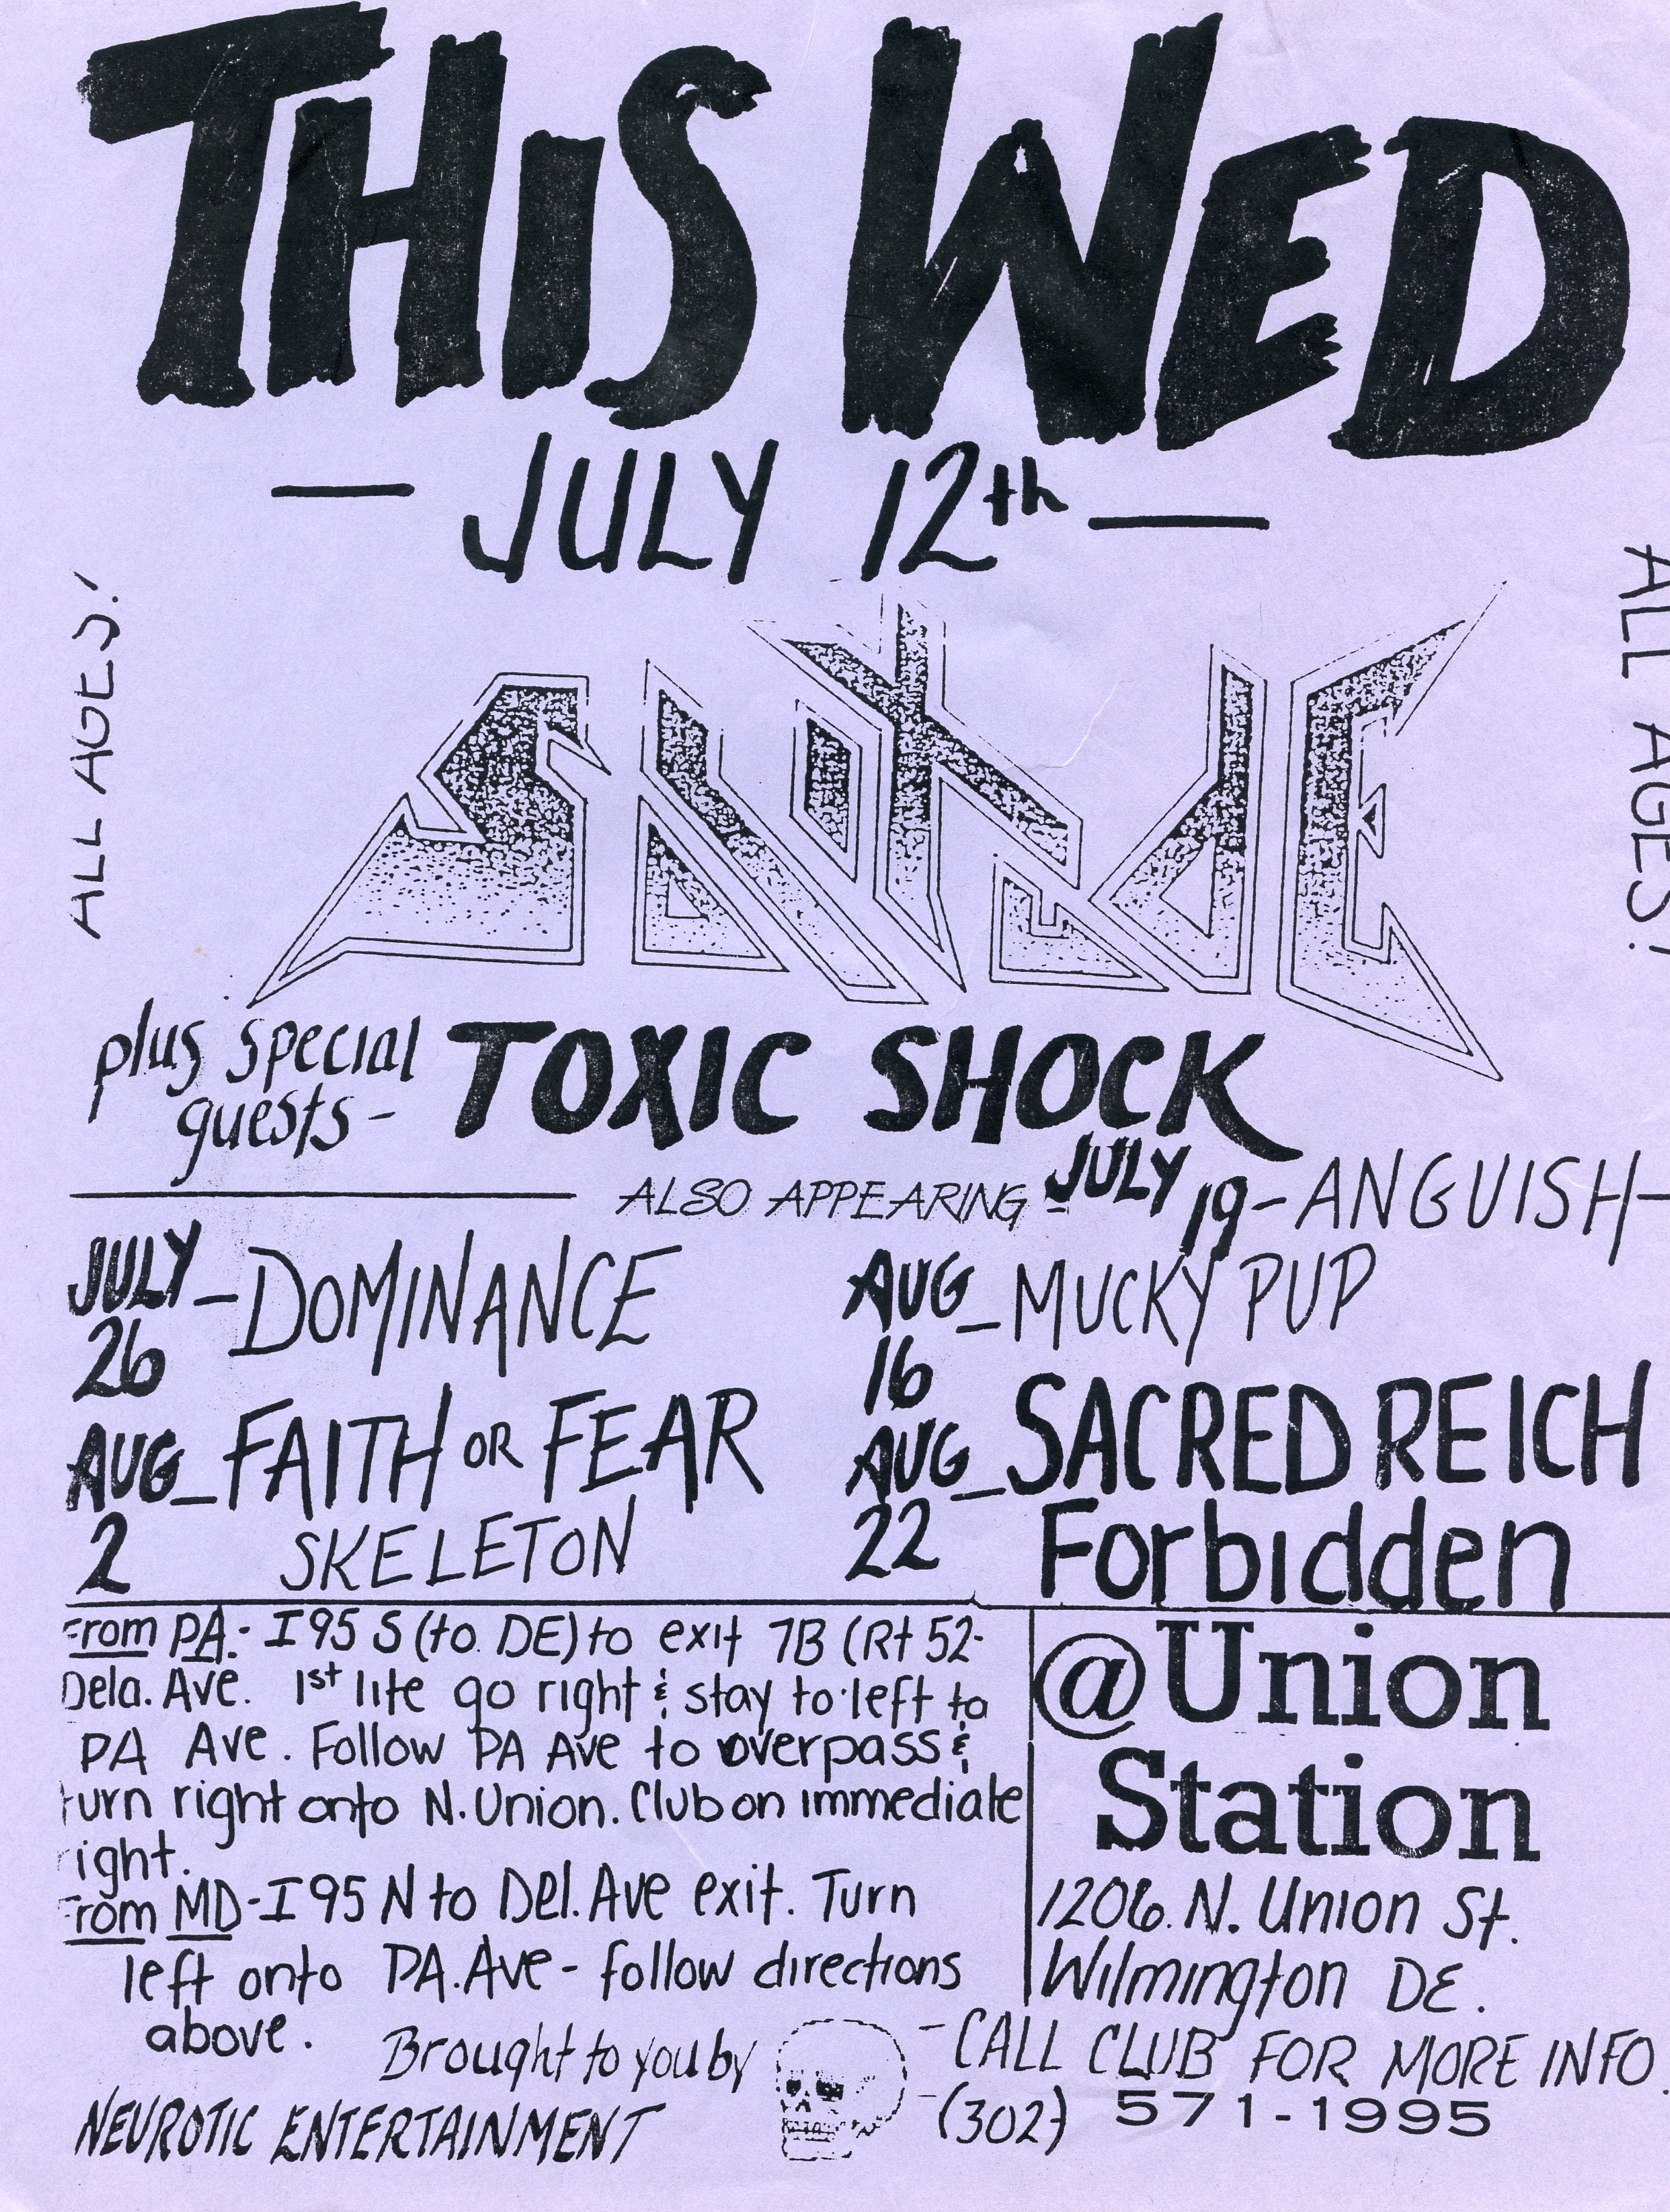 THIS WED
— JULY 12th —
ALL AGES!
ALL AGES!
SOLITUDE
plus special
guests-
TOXIC SHOCK
ALSO APPEARING - JULY 19-ANGUISH-
JULY 26 - DOMINANCE
AUG 2 - FAITH OR FEAR
SKELETON
AUG 16 - MUCKY PUP
AUG 22 - SACRED REICH
Forbidden
From PA.- I95 S (to DE) to exit 7B (Rt 52-
Dela. Ave. 1st lite go right & stay to left to
PA Ave. Follow PA Ave to overpass &
turn right onto N. Union. Club on immediate
right.
From MD-I95 N to Del. Ave exit. Turn
left onto PA. Ave - follow directions
above.
@Union
Station
1206. N. Union St.
Wilmington DE.
Brought to you by
NEUROTIC ENTERTAINMENT
- CALL CLUB FOR MORE INFO.
- (302) 571-1995